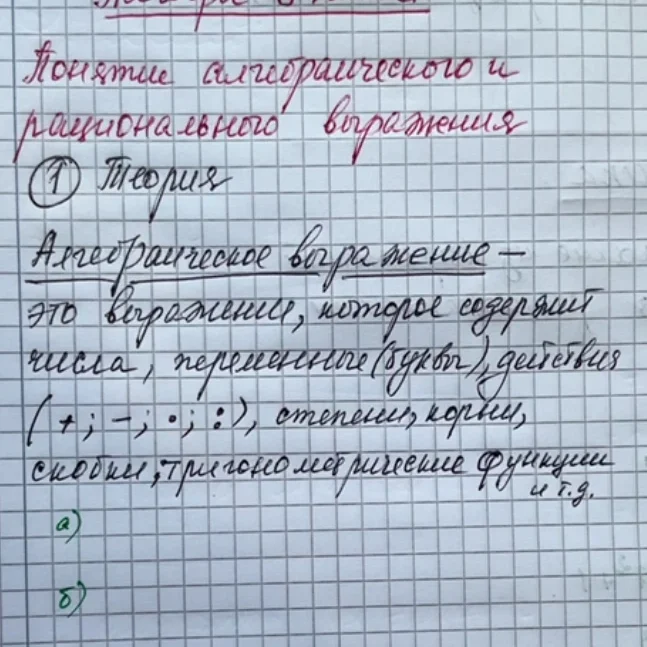 Понятие алгебраического и
рационального выражения
1 Теория
Алгебраическое выражение –
это выражение, которое содержит
числа, переменные (буквы), действия
(+; –; •; :), степени, корни,
скобки, тригонометрические функции
и т.д.
а)
б)